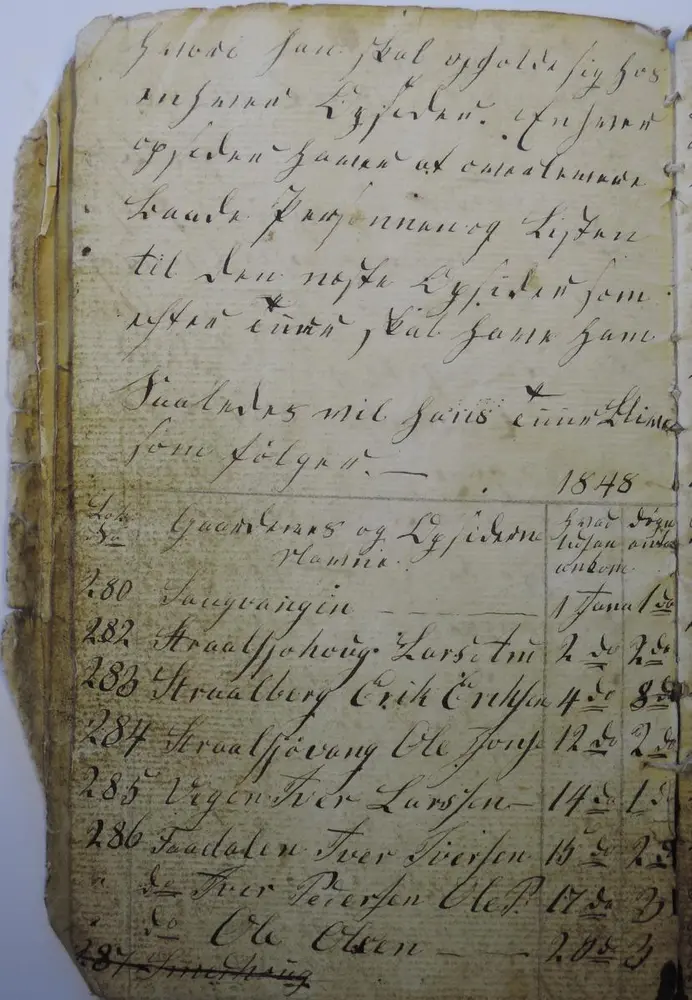 hvori han skal opholde sig hos
enhver Opsider. Enhver
opsider haver at overlevere
baade Personnen og Listen
til den næste Opsider som
efter Tuur skal have ham
Saaledes vil hans Tuur blive
som følger. —
1848
Løb No Gaardenes og Opsidernes Navne. hvad tid han ankom døgn antal
280 Sangvangen — — 1 Janu 1 do
282 Straalsjøhoug Lars Am 2 do 2 do
283 Straalberg Erik Eriksen 4 do 8 do
284 Straalsjøvang Ole Jons 12 do 2 do
285 Vegen Iver Larssen — 14 do 1 do
286 Faadalen Iver Iversen 15 do 2 do
" do Iver Pedersen Ole P. 17 do 3
" do Ole Olsen — — 20 do 3
287